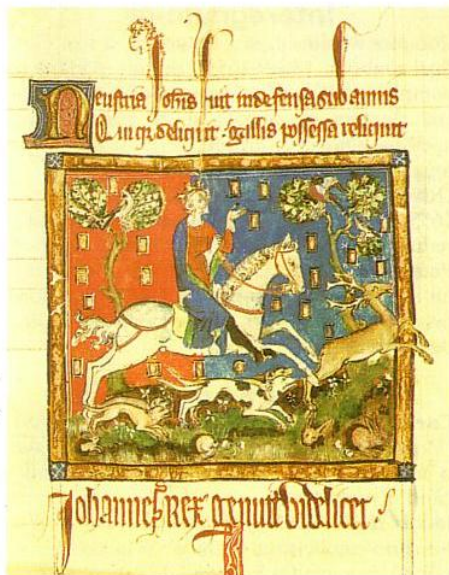 Neustria Joh̄is fuit indefensa sub annis
Qui q̄ deliquit gallis possessa reliquit
Johannes Rex genuit videlicet